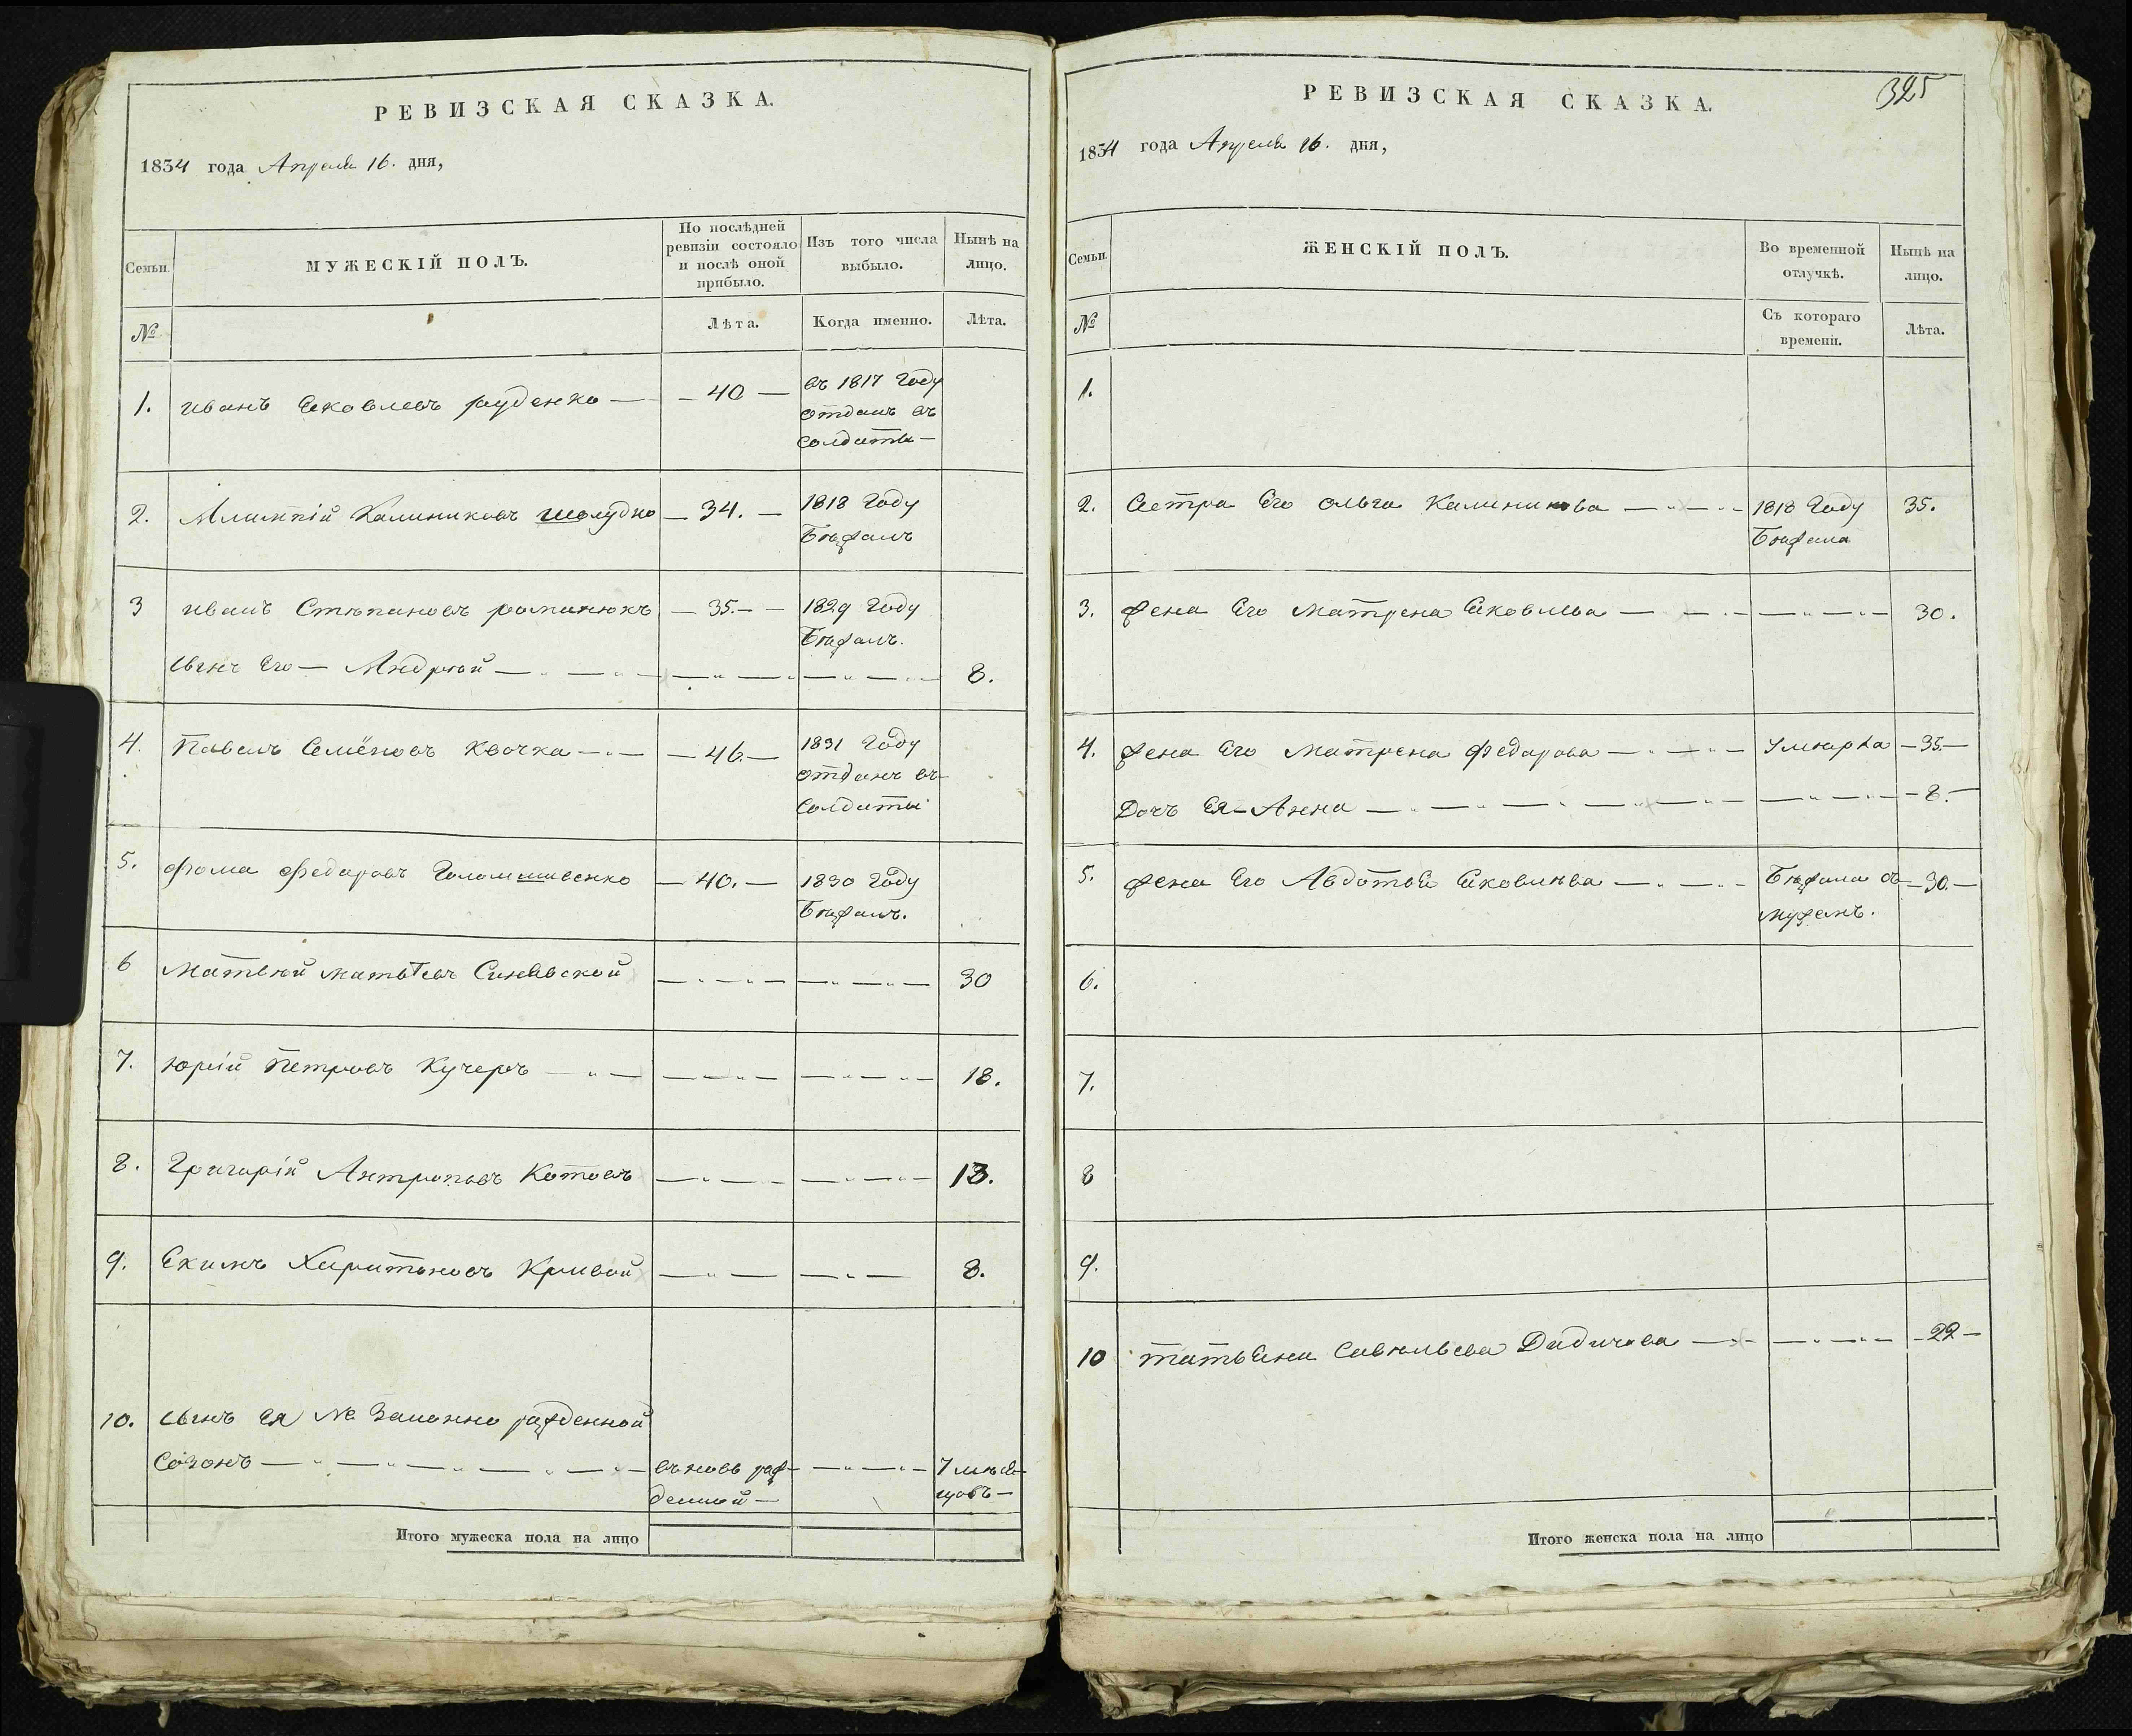 РЕВИЗСКАЯ СКАЗКА.
1834 года Апреля 16. дня,
Семьи.
МУЖЕСКІЙ ПОЛЪ.
По послѣдней ревизіи состояло и послѣ оной прибыло.
Изъ того числа выбыло.
Нынѣ на лицо.
№
Лѣта.
Когда именно.
Лѣта.
1. иванъ Яковлевъ руденко — — 40 — въ 1817 году
отданъ въ
солдаты —
2. Калиниковъ шолудко — 34. — 1818 году
Бѣжалъ
3 иванъ Стѣпановъ романюкъ — 35. — 1829 году
Бѣжалъ.
сынъ Его — Андрѣй — 8.
4. Павелъ Семёновъ Квочка — — 46. — 1831 году
отданъ въ
солдаты
5. фома Федаровъ — 40. — 1830 году
Бѣжалъ.
6 Матвѣй матвѣевъ Синявской 30
7. Юрій Петровъ Кучеръ — 18.
8. Григорій Антроповъ Котовъ 13.
9. Екимъ Харитоновъ Кривой 8.
10. сынъ Ея Не Законно рожденной
Созонъ — въновь рож- 7 мѣся-
денной — цовъ —
Итого мужеска пола на лицо
325
РЕВИЗСКАЯ СКАЗКА.
1834 года Апреля 16. дня,
Семьи.
ЖЕНСКІЙ ПОЛЪ.
Во временной отлучкѣ.
Нынѣ на лицо.
№
Съ котораго времени.
Лѣта.
1.
2. Сестра Его ольга Калиникова — 1818 году 35.
Бѣжала
3. жена Его матрена Яковлева — 30.
4. жена Его матрена федарова — Умюрла — 35. —
Дочъ Ея — Анна — 8. —
5. жена Его Авдотья Яковлѣва — Бѣжала съ — 30. —
мужемъ.
6.
7.
8
9.
10 татьяна Савѣльева Дидичева — 22 —
Итого женска пола на лицо